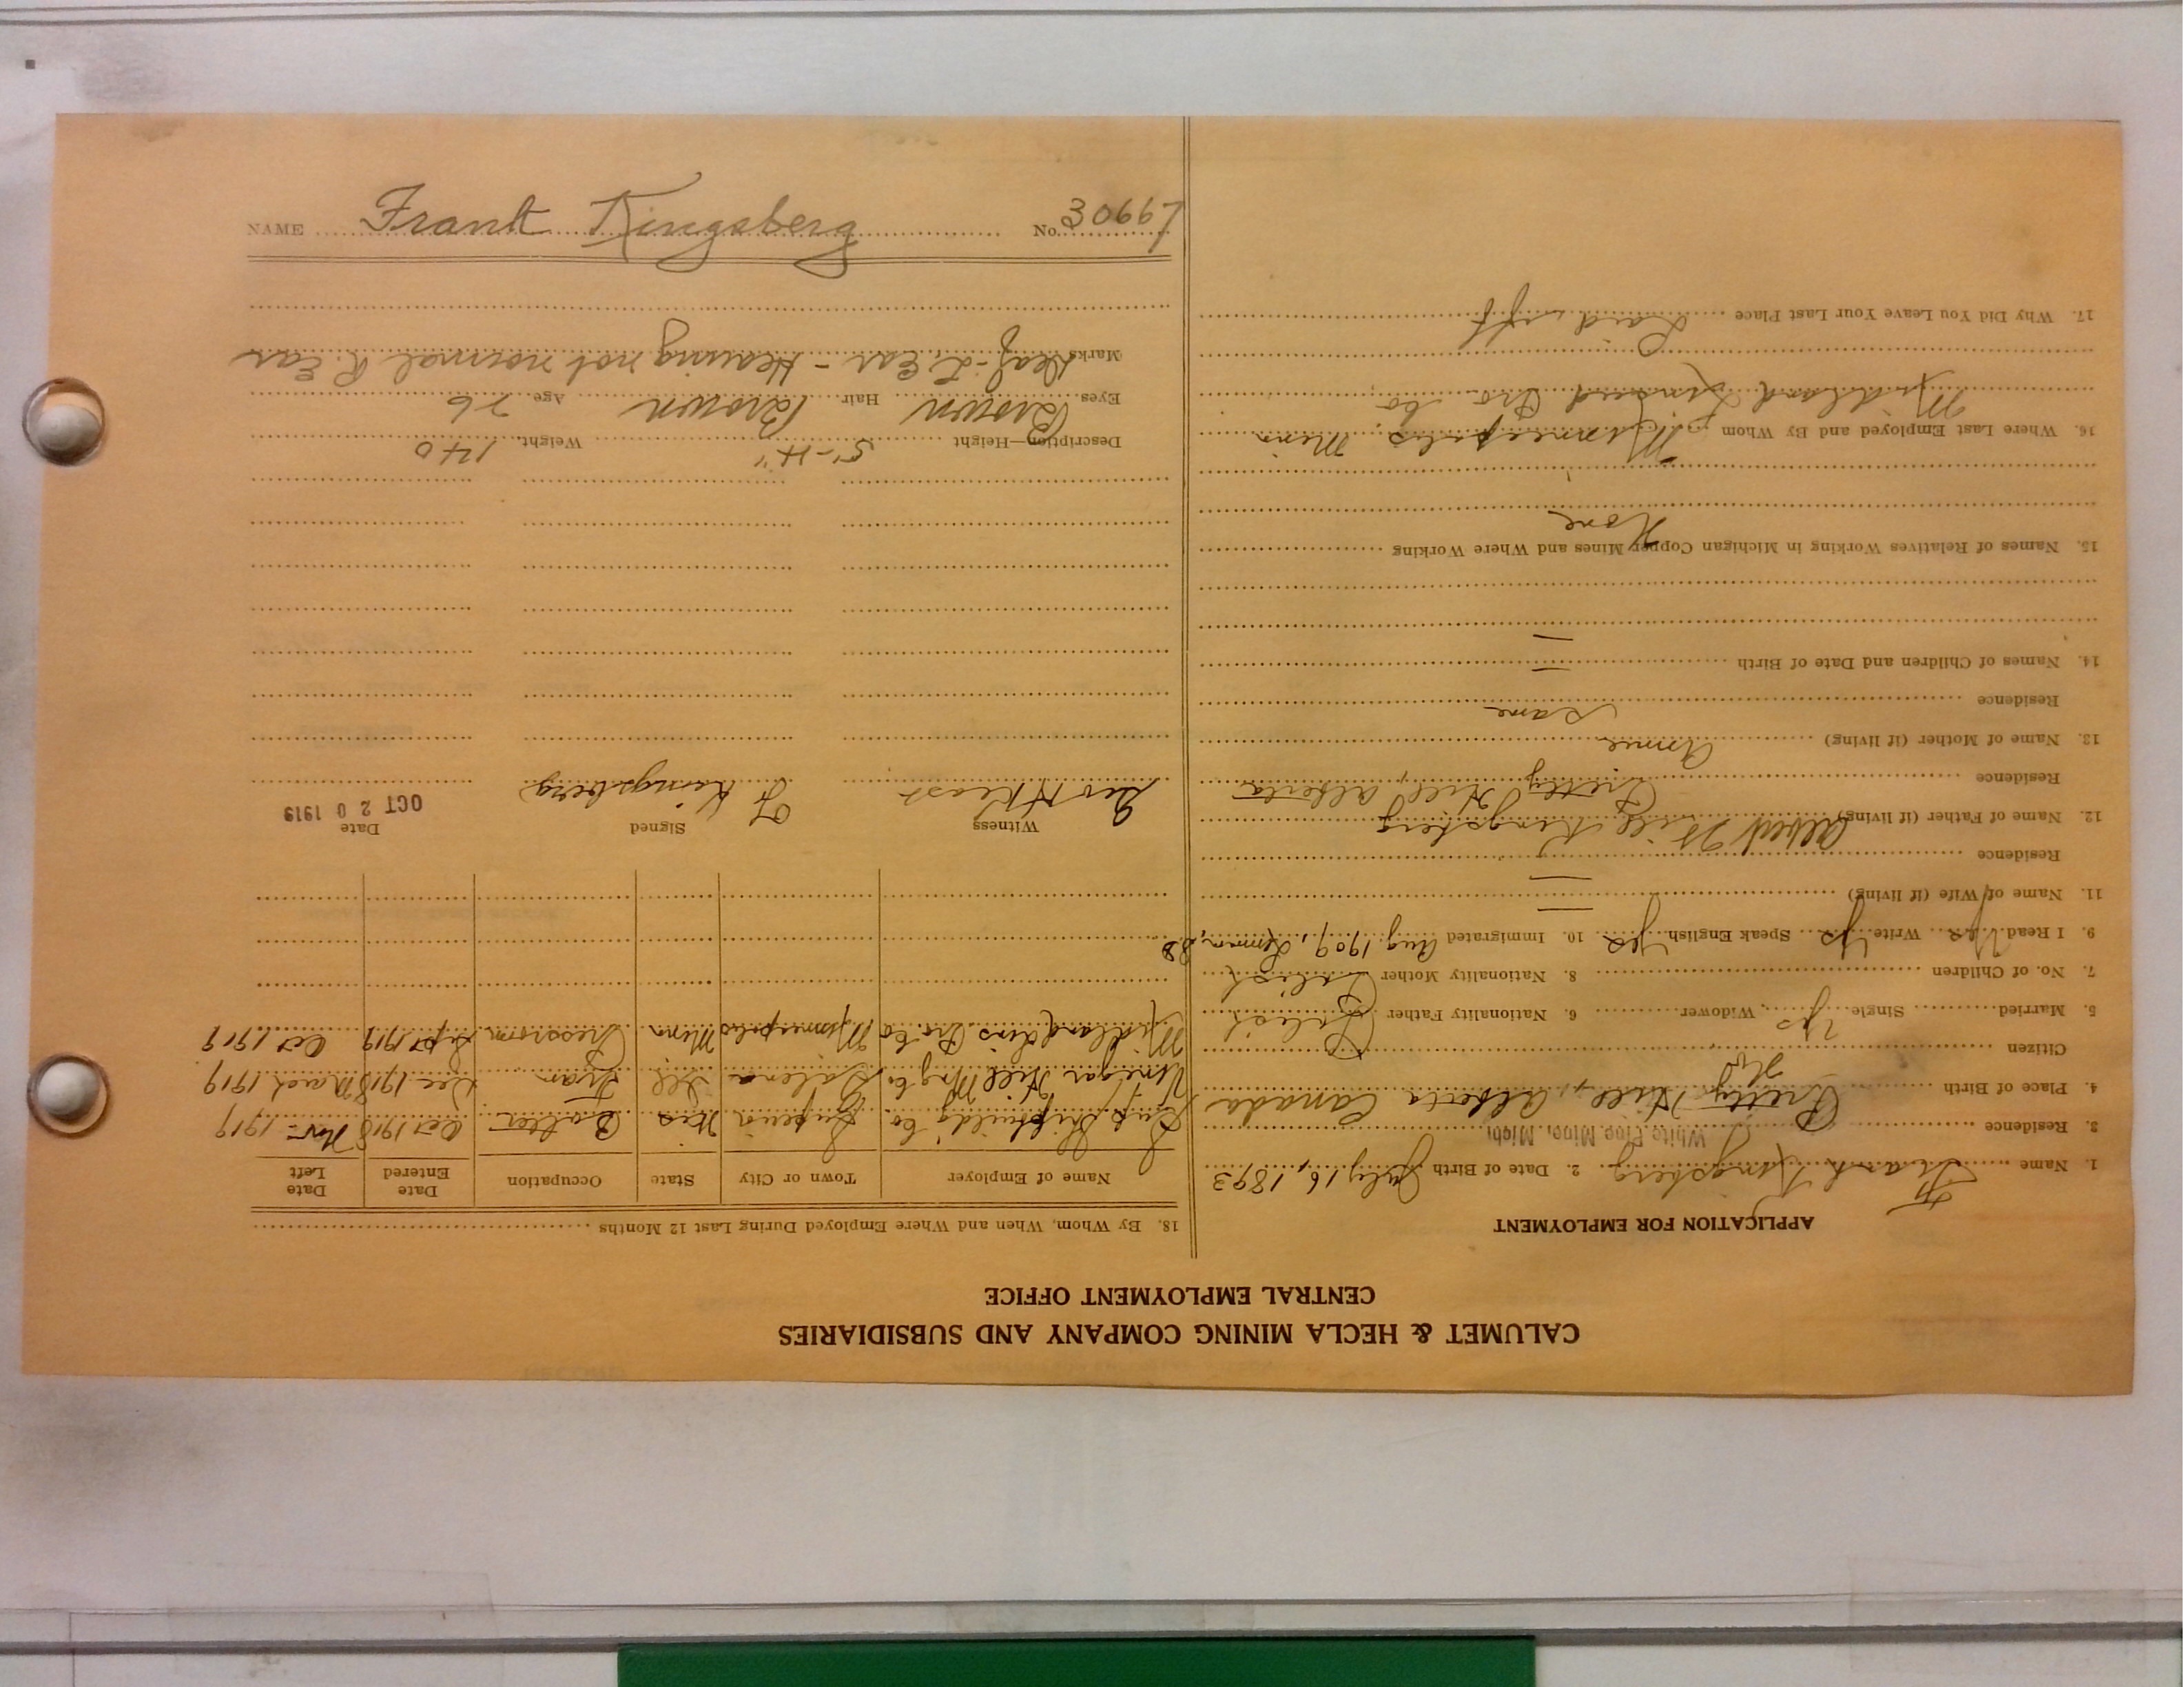 NAME Frank Kingsberg No. 30667
CALUMET & HECLA MINING COMPANY AND SUBSIDIARIES
CENTRAL EMPLOYMENT OFFICE
APPLICATION FOR EMPLOYMENT
1. Name Frank Kingsberg 2. Date of Birth July 16, 1893
3. Residence White Pine Mine, Mich.
4. Place of Birth Pretty Hill, Alberta Canada
Citizen No
5. Married Single Yes Widower 6. Nationality Father Polish
7. No. of Children 8. Nationality Mother Polish
9. I Read Yes Write Yes Speak English Yes 10. Immigrated Aug 1909,
11. Name of Wife (if living) —
Residence
12. Name of Father (if living) Albert Kingsberg
Residence Pretty Hill Alberta
13. Name of Mother (if living) Annie
Residence Same
14. Names of Children and Date of Birth —
15. Names of Relatives Working in Michigan Copper Mines and Where Working
None
16. Where Last Employed and By Whom Minneapolis, Minn
Midland Linseed Pro. Co.
17. Why Did You Leave Your Last Place Laid off
18. By Whom, When and Where Employed During Last 12 Months
Name of Employer Town or City State Occupation Date Entered Date Left
Sup Shipbuild'g Co. Superior Wis Oct 1918 Nov
Vinegar Hill M'ng Co Galena Ill Tram Dec 1918 March 1919
Midland Lins Pro. Co Minneapolis Minn Pressroom Sept 1919 Oct 1919
Witness Signed Date
Geo H Keast F Kingsberg OCT 20 1919
Description—Height 5'-4" Weight 140
Eyes Brown Hair Brown Age 26
Marks Deaf - L. Ear - Hearing not normal R Ear